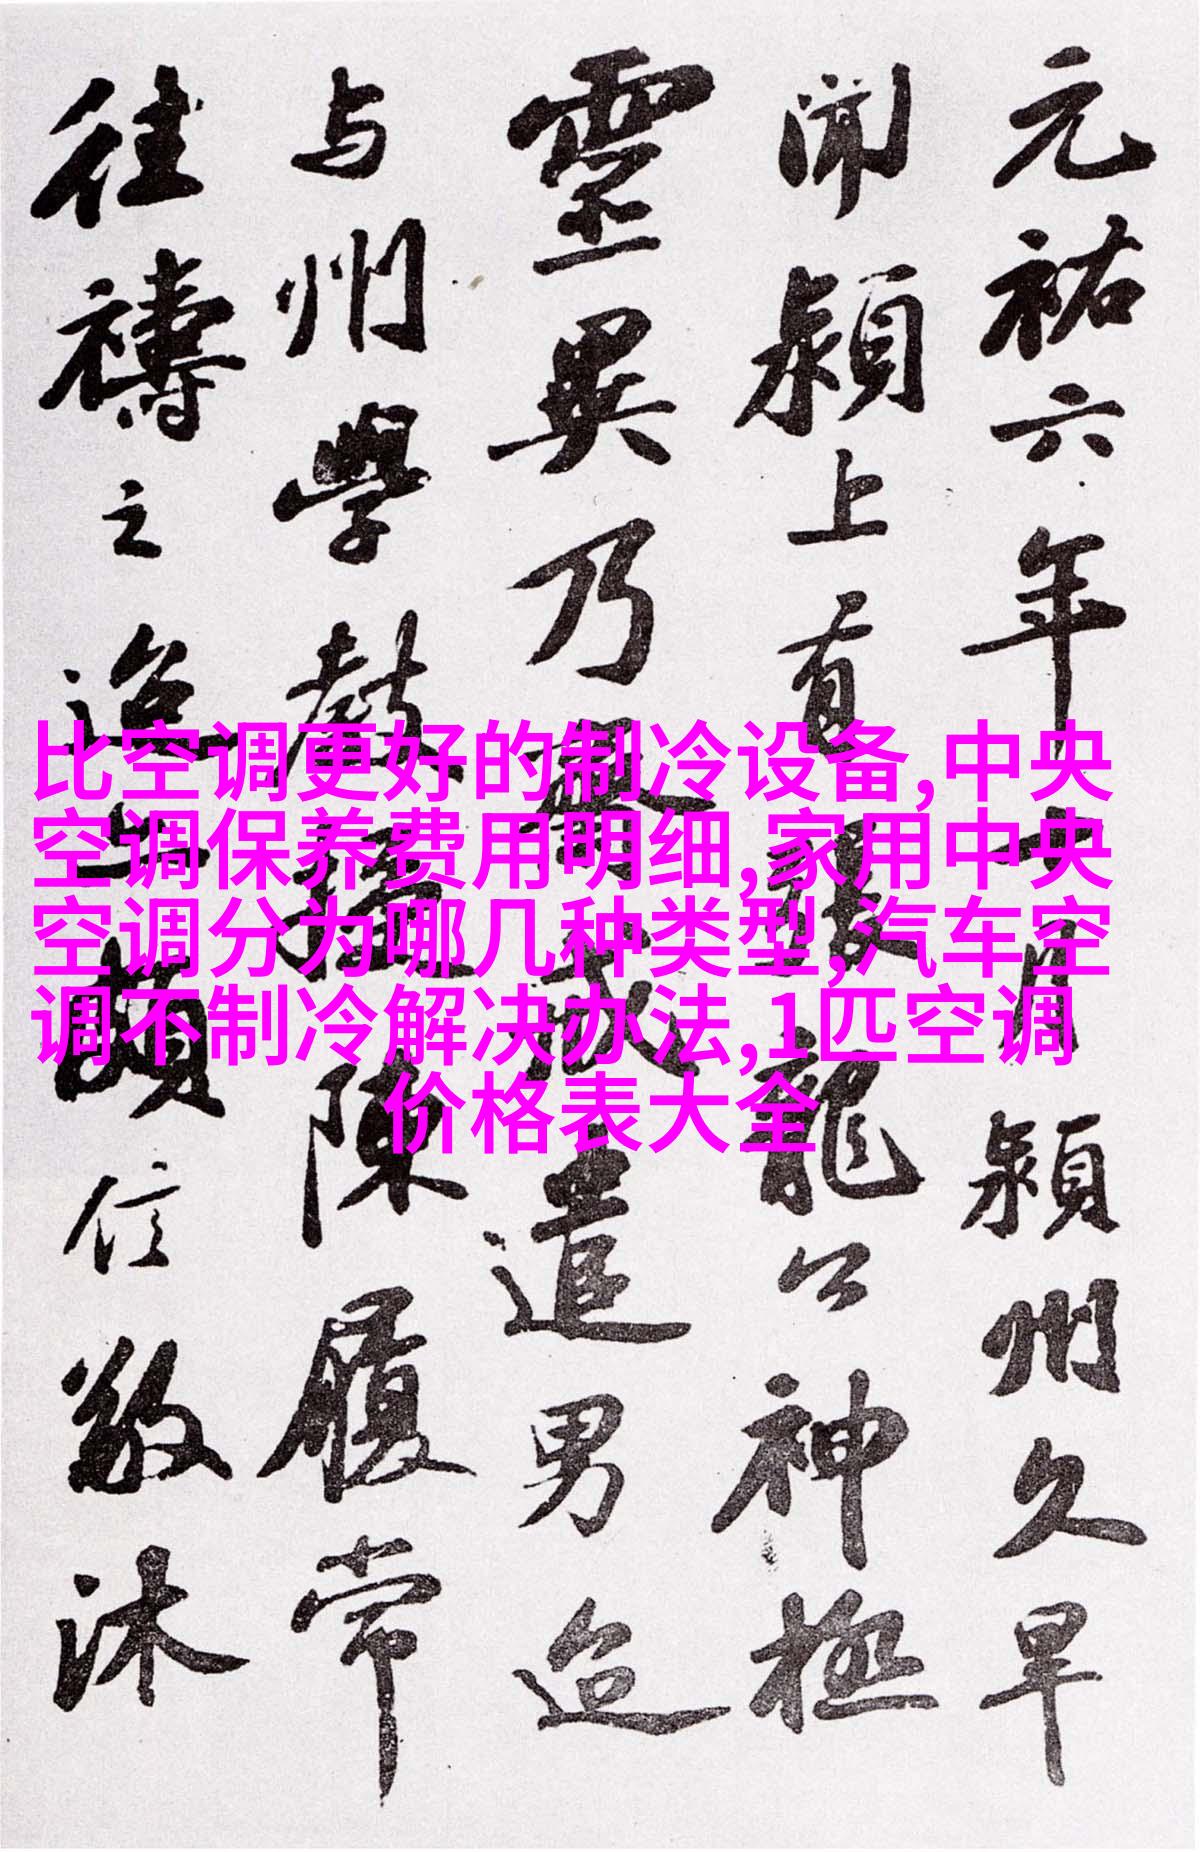 元祐六年十月潁州久旱
聞潁上有張龍公神極
靈異乃齋戒遣男迨
与州學教授陳履常
往禱之迨亦頗信敬沐
比空调更好的制冷设备,中央
空调保养费用明细,家用中央
空调分为哪几种类型,汽车空
调不制冷解决办法,1匹空调
价格表大全